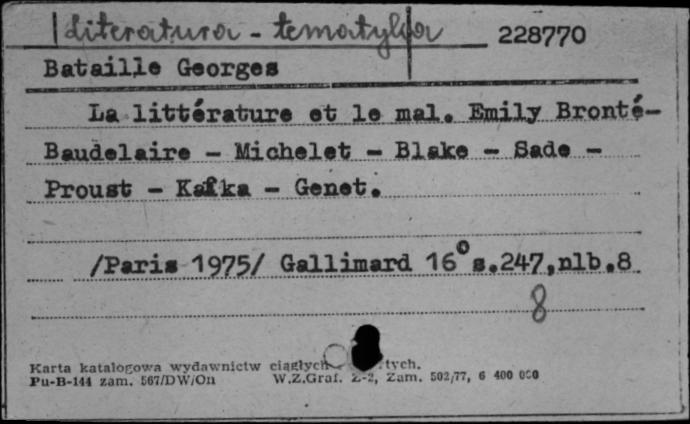 Literatura - tematyka 228770
Bataille Georges
La littérature et le mal. Emily Bronté-
Baudelaire - Michelet - Blake - Sade -
Proust - Kafka - Genet.
/Paris 1975/ Gallimard 16° s.247,nlb.8
8
Karta katalogowa wydawnictw ciągłych tych.
Pu-B-144 zam. 567/DW/On W.Z.Graf. Z-2, Zam. 502/77, 6 400 000